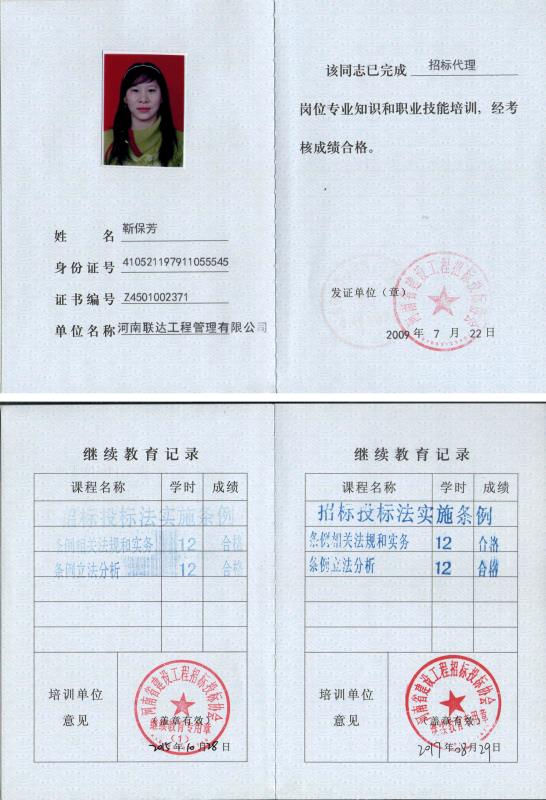 该同志已完成 招标代理
岗位专业知识和职业技能培训，经考
核成绩合格。
姓 名 靳保芳
身份证号 410521197911055545
证书编号 Z4501002371
单位名称 河南联达工程管理有限公司
河南省建设工程招标投标协会
发证单位（章）
2009 年 7 月 22 日
继续教育记录
课程名称 学时 成绩
招标投标法实施条例
条例相关法规和实务 12 合格
条例立法分析 12 合格
培训单位
意见
河南省建设工程招标投标协会
（盖章有效）
继续教育专用章
（1）
2015 年 10 月 28 日
继续教育记录
课程名称 学时 成绩
招标投标法实施条例
条例相关法规和实务 12 合格
条例立法分析 12 合格
培训单位
意见
河南省建设工程招标投标协会
（盖章有效）
2017 年 08 月 29 日